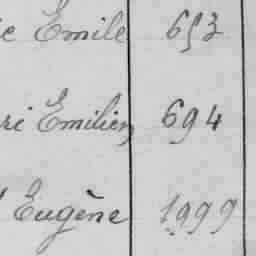 Emile 653
Emilien 694
Eugène 1999